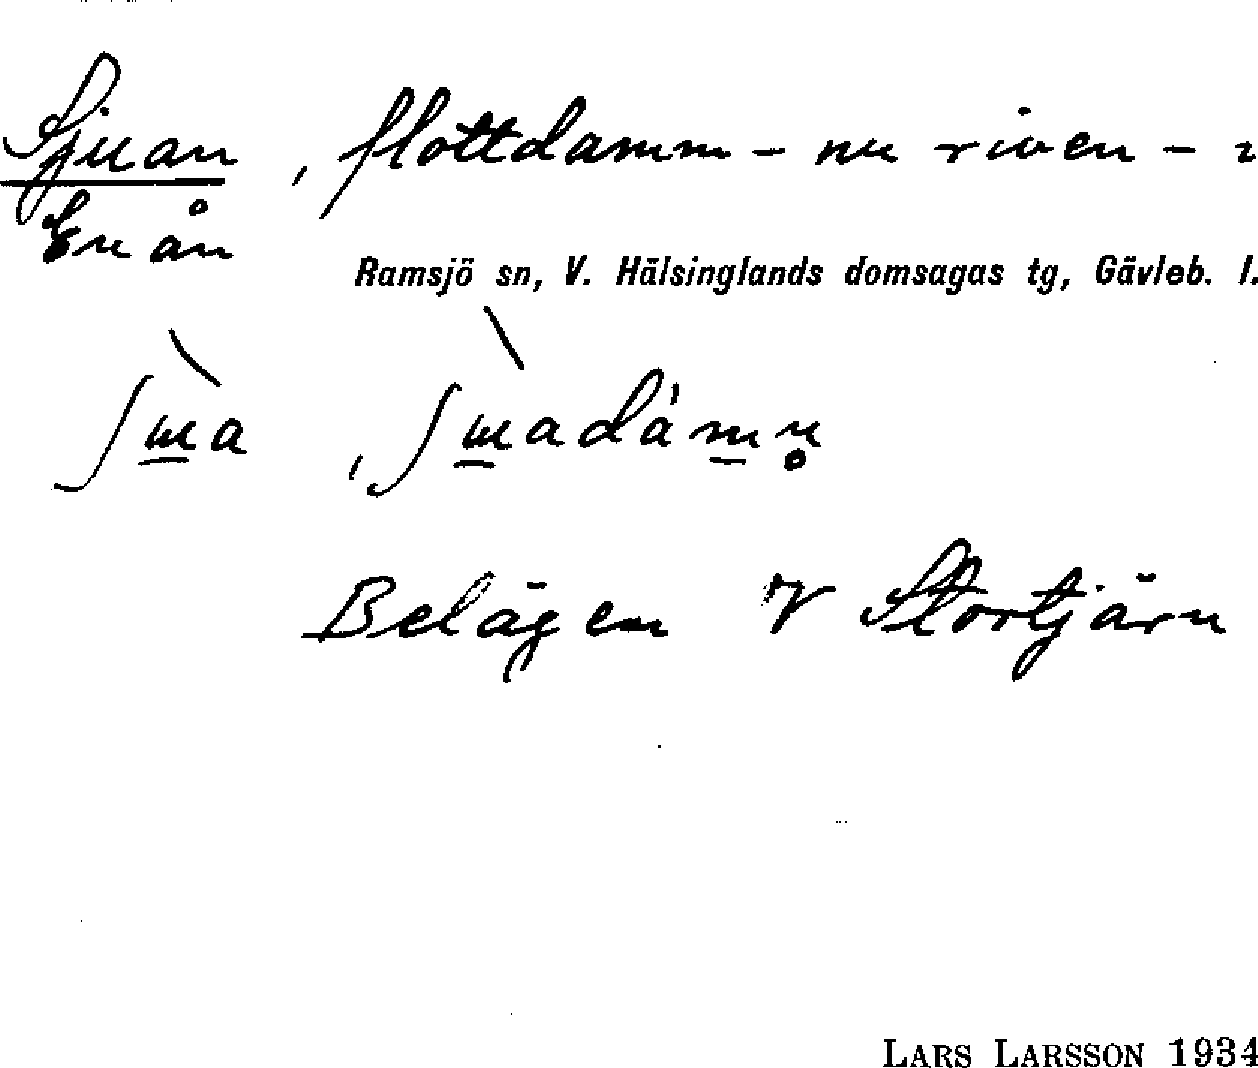 Sjuan, flottdamm - nu riven - i
Enån
Ramsjö sn, V. Hälsinglands domsagas tg, Gävleb. l.
Belägen V Stortjärn
LARS LARSSON 1934